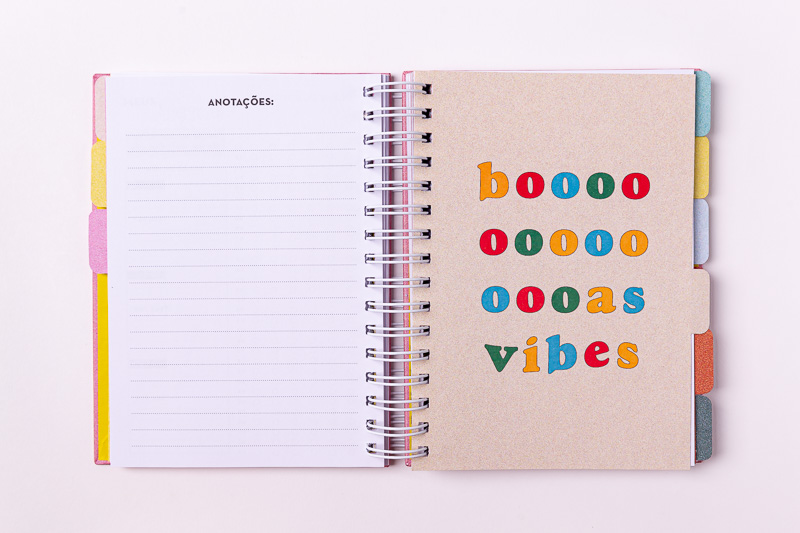 ANOTAÇÕES:
boooo
ooooo
oooas
vibes